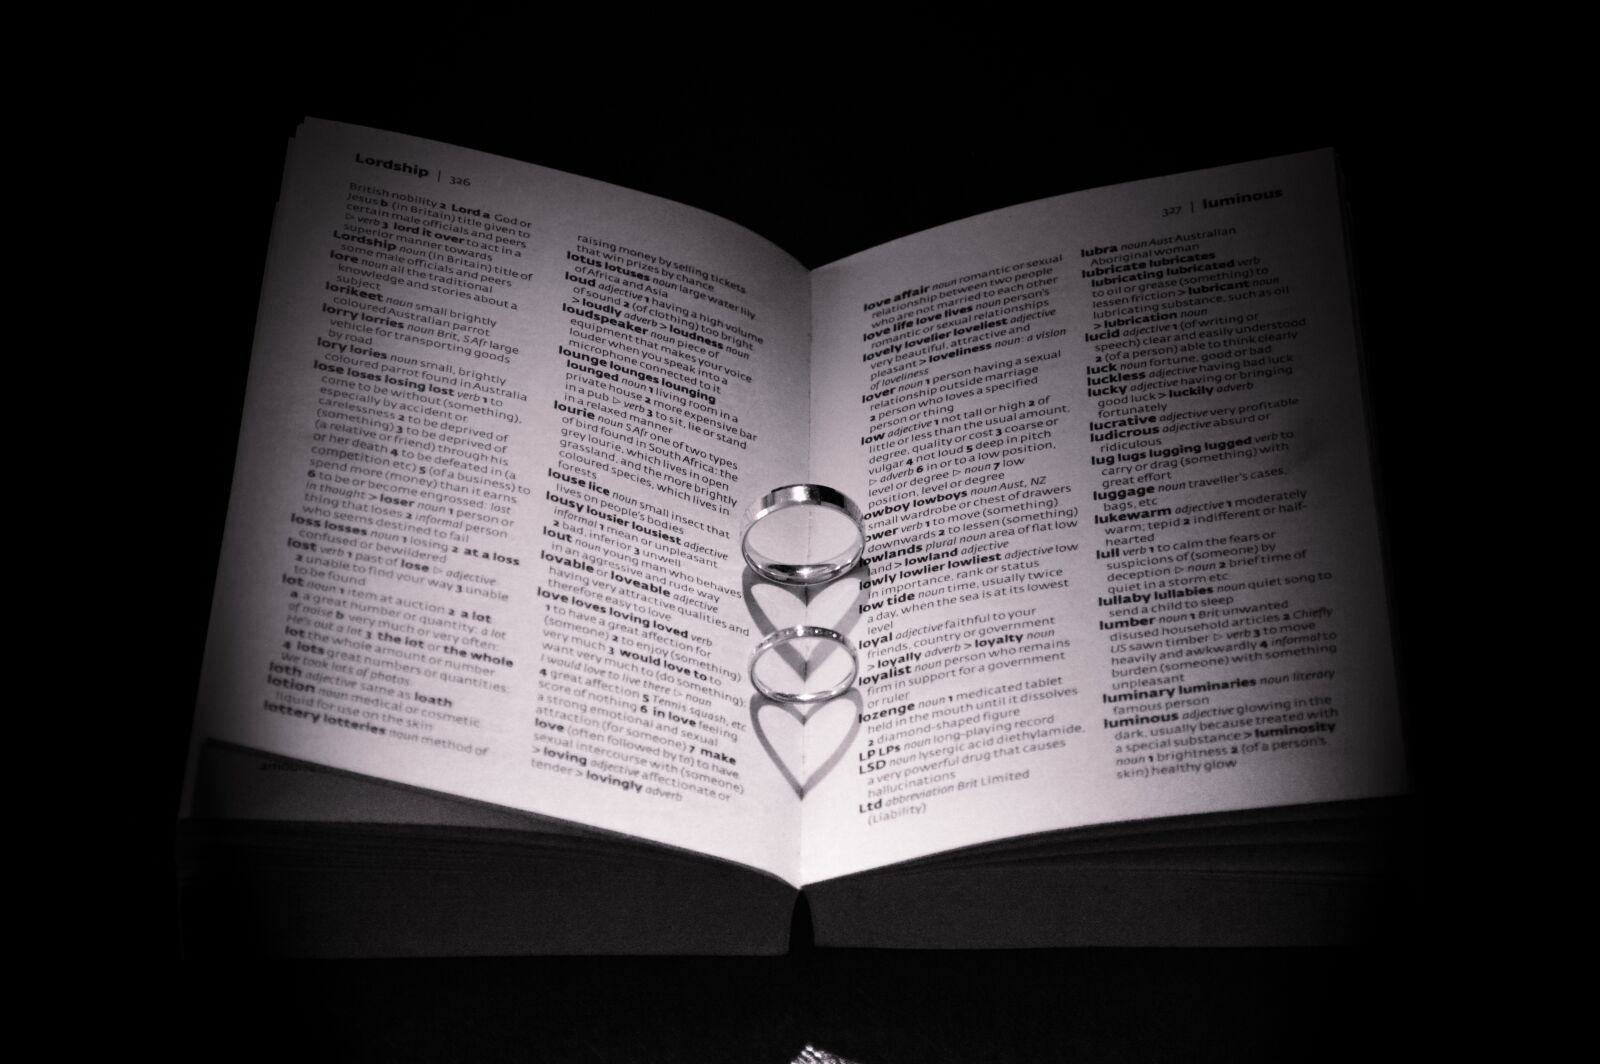 Lordship | 326
British nobility 2 Lord a God or
Jesus b (in Britain) title given to
certain male officials and peers
▷ verb 3 lord it over to act in a
superior manner towards
Lordship noun (in Britain) title of
some male officials and peers
lore noun all the traditional
knowledge and stories about a
subject
lorikeet noun small brightly
coloured Australian parrot
lorry lorries noun Brit, SAfr large
vehicle for transporting goods
by road
lory lories noun small, brightly
coloured parrot found in Australia
lose loses losing lost verb 1 to
come to be without (something),
especially by accident or
carelessness 2 to be deprived of
(something) 3 to be deprived of
(a relative or friend) through his
or her death 4 to be defeated in (a
competition etc) 5 (of a business) to
spend more (money) than it earns
6 to be or become engrossed: lost
in thought > loser noun 1 person or
thing that loses 2 informal person
who seems destined to fail
loss losses noun 1 losing 2 at a loss
confused or bewildered
lost verb 1 past of lose ▷ adjective
2 unable to find your way 3 unable
to be found
lot noun 1 item at auction 2 a lot
a a great number or quantity: a lot
of noise b very much or very often:
He's out a lot 3 the lot or the whole
lot the whole amount or number
4 lots great numbers or quantities:
We took lots of photos
loth adjective same as loath
lotion noun medical or cosmetic
liquid for use on the skin
lottery lotteries noun method of
raising money by selling tickets
that win prizes by chance
lotus lotuses noun large water lily
of Africa and Asia
loud adjective 1 having a high volume
of sound 2 (of clothing) too bright
> loudly adverb > loudness noun
loudspeaker noun piece of
equipment that makes your voice
louder when you speak into a
microphone connected to it
lounge lounges lounging
lounged noun 1 living room in a
private house 2 more expensive bar
in a pub ▷ verb 3 to sit, lie or stand
in a relaxed manner
lourie noun SAfr one of two types
of bird found in South Africa: the
grey lourie, which lives in open
grassland, and the more brightly
coloured species, which lives in
forests
louse lice noun small insect that
lives on people's bodies
lousy lousier lousiest adjective
informal 1 mean or unpleasant
2 bad, inferior 3 unwell
lout noun young man who behaves
in an aggressive and rude way
lovable or loveable adjective
having very attractive qualities and
therefore easy to love
love loves loving loved verb
1 to have a great affection for
(someone) 2 to enjoy (something)
very much 3 would love to to
want very much to (do something):
I would love to live there ▷ noun
4 great affection 5 Tennis squash, etc
score of nothing 6 in love feeling
a strong emotional and sexual
attraction (for someone) 7 make
love (often followed by to) to have
sexual intercourse with (someone)
> loving adjective affectionate or
tender > lovingly adverb
327 | luminous
love affair noun romantic or sexual
relationship between two people
who are not married to each other
love life love lives noun person's
romantic or sexual relationships
lovely lovelier loveliest adjective
very beautiful, attractive and
pleasant > loveliness noun: a vision
of loveliness
lover noun 1 person having a sexual
relationship outside marriage
2 person who loves a specified
person or thing
low adjective 1 not tall or high 2 of
little or less than the usual amount,
degree, quality or cost 3 coarse or
vulgar 4 not loud 5 deep in pitch
▷ adverb 6 in or to a low position,
level or degree ▷ noun 7 low
position, level or degree
lowboy lowboys noun Aust, NZ
small wardrobe or chest of drawers
lower verb 1 to move (something)
downwards 2 to lessen (something)
lowlands plural noun area of flat low
land > lowland adjective
lowly lowlier lowliest adjective low
in importance, rank or status
low tide noun time, usually twice
a day, when the sea is at its lowest
level
loyal adjective faithful to your
friends, country or government
> loyally adverb > loyalty noun
loyalist noun person who remains
firm in support for a government
or ruler
lozenge noun 1 medicated tablet
held in the mouth until it dissolves
2 diamond-shaped figure
LP LPs noun long-playing record
LSD noun lysergic acid diethylamide,
a very powerful drug that causes
hallucinations
Ltd abbreviation Brit Limited
(Liability)
lubra noun Aust Australian
Aboriginal woman
lubricate lubricates
lubricating lubricated verb
to oil or grease (something) to
lessen friction > lubricant noun
lubricating substance, such as oil
> lubrication noun
lucid adjective 1 (of writing or
speech) clear and easily understood
2 (of a person) able to think clearly
luck noun fortune, good or bad
luckless adjective having bad luck
lucky adjective having or bringing
good luck > luckily adverb
fortunately
lucrative adjective very profitable
ludicrous adjective absurd or
ridiculous
lug lugs lugging lugged verb to
carry or drag (something) with
great effort
luggage noun traveller's cases,
bags, etc
lukewarm adjective 1 moderately
warm; tepid 2 indifferent or half-
hearted
lull verb 1 to calm the fears or
suspicions of (someone) by
deception ▷ noun 2 brief time of
quiet in a storm etc
lullaby lullabies noun quiet song to
send a child to sleep
lumber noun 1 Brit unwanted
disused household articles 2 Chiefly
US sawn timber ▷ verb 3 to move
heavily and awkwardly 4 informal to
burden (someone) with something
unpleasant
luminary luminaries noun literary
famous person
luminous adjective glowing in the
dark, usually because treated with
a special substance > luminosity
noun 1 brightness 2 (of a person's
skin) healthy glow